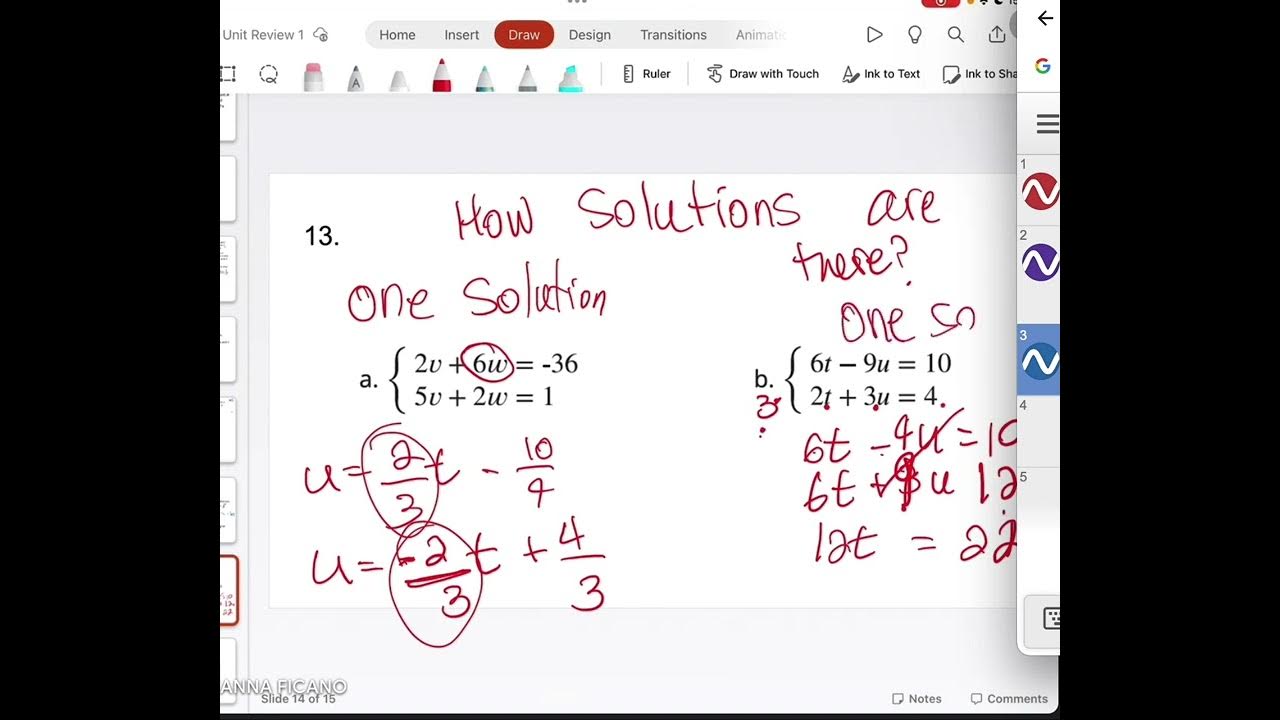 Unit Review 1
Home Insert Draw Design Transitions Animati
Ruler Draw with Touch Ink to Text Ink to Sha
13.
How Solutions are
there?
One Solution
One so
a. { 2v + 6w = -36
5v + 2w = 1
b. { 6t – 9u = 10
2t + 3u = 4
3
u = 2/3 t - 10/9
u = -2/3 t + 4/3
6t - 9u = 10
6t + 9u 12
12t = 22
1
2
3
4
5
ANNA FICANO
Slide 14 of 15
Notes Comments